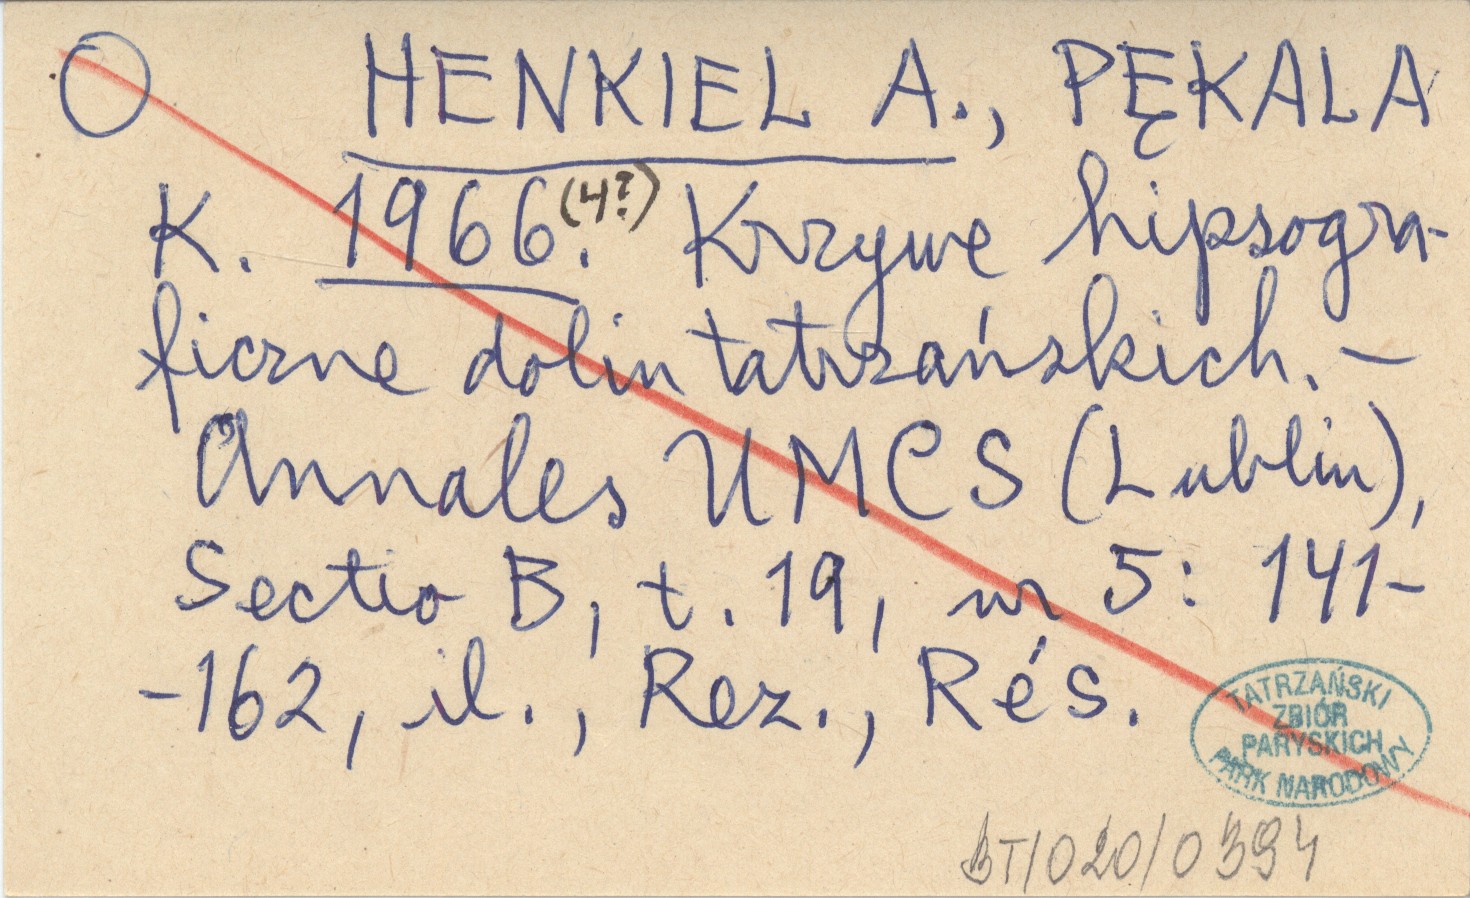 HENKIEL A., PĘKALA
K. 1966(4?). Krzywe hipsogra-
ficzne dolin tatrzańskich. –
Annales UMCS (Lublin),
Sectio B, t. 19, nr 5: 141-
-162, il., Rez., Rés.
TATRZAŃSKI
ZBIÓR
PARYSKICH
PARK NARODOWY
BT/020/0394